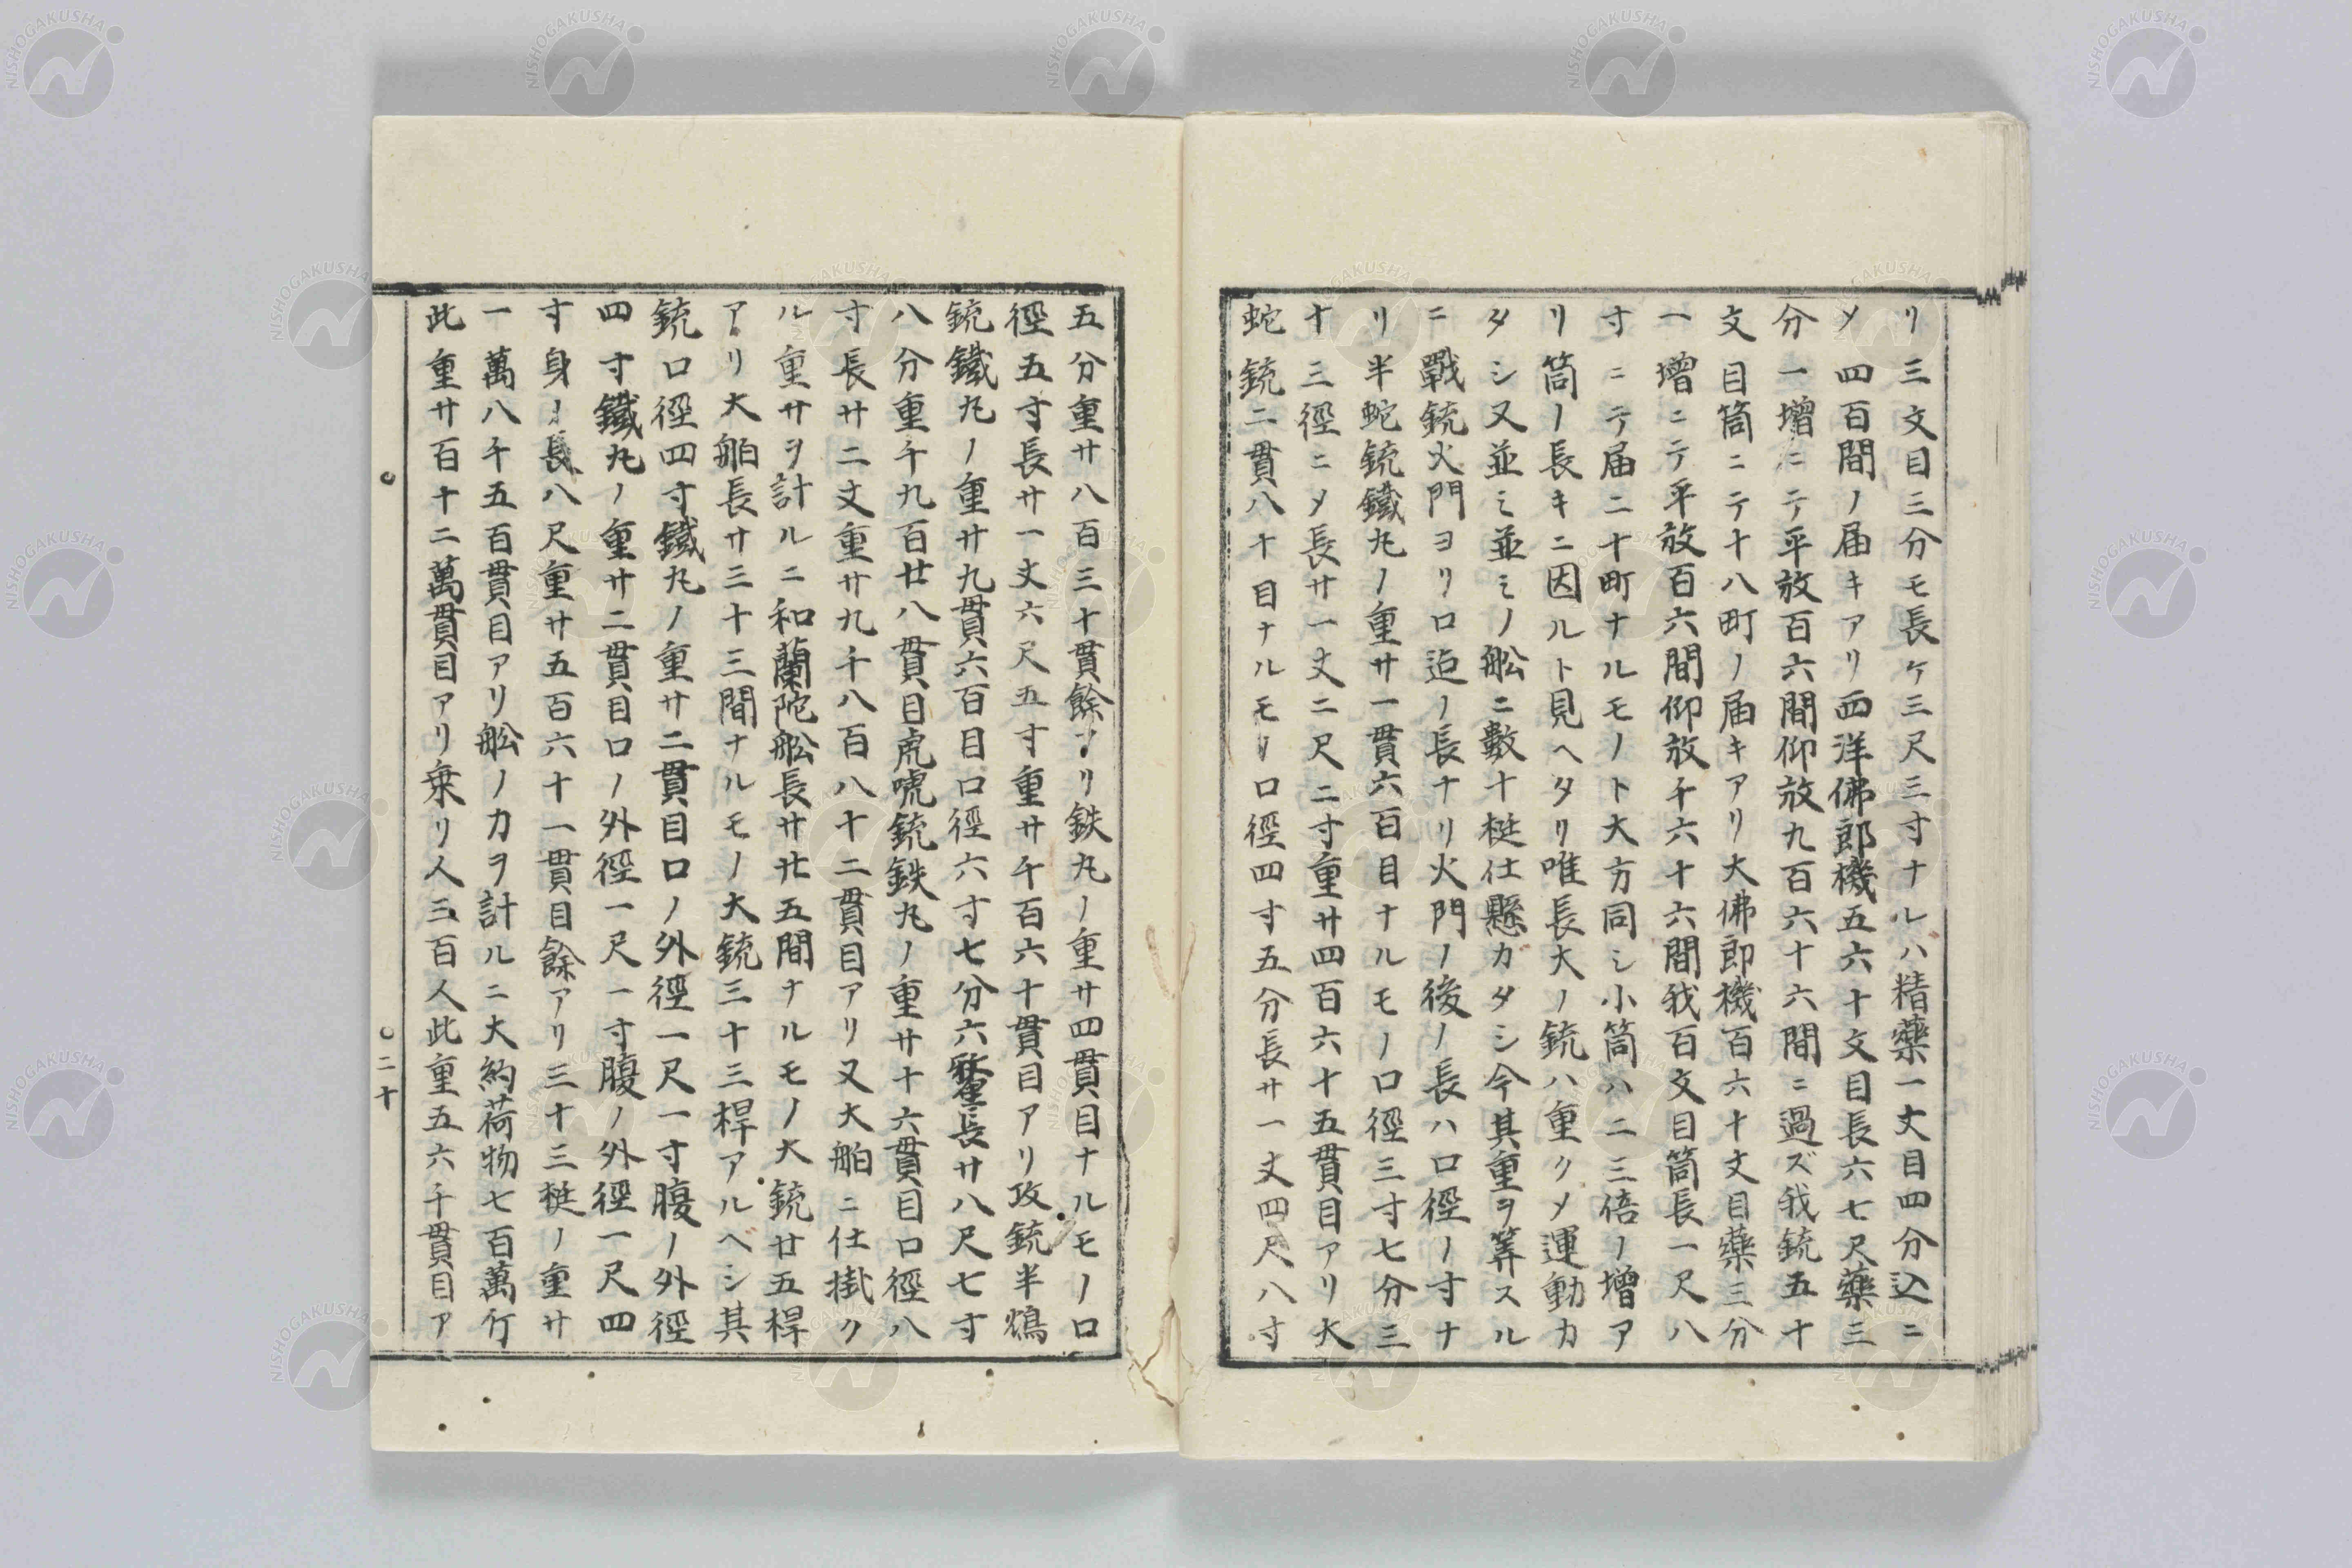 リ三文目三分モ長ケ三尺三寸ナルハ精藥一丈目四分込ニ
メ四百間ノ届キアリ西洋佛郎機五六十文目長六七尺藥三
分一增ニテ平放百六間仰放九百六十六間ニ過ズ我銃五十
文目筒ニテ十八町ノ届キアリ大佛郎機百六十文目藥三分
一增ニテ平放百六間仰放千六十六間我百文目筒長一尺八
寸ニテ届二十町ナルモノト大方同シ小筒ハ二三倍ノ增ア
リ筒ノ長キニ因ルト見ヘタリ唯長大ノ銃ハ重クメ運動カ
タシ又並ミ並ミノ舩ニ數十梃仕懸カタシ今其重ヲ筭スル
ニ戰銃火門ヨリ口迄ノ長ナリ火門ノ後ノ長ハ口徑ノ寸ナ
リ半蛇銃鐵丸ノ重サ一貫六百目ナルモノ口徑三寸七分三
十三徑ニメ長サ一丈二尺二寸重サ四百六十五貫目アリ大
蛇銃二貫八十目ナルモリ口徑四寸五分長サ一丈四尺八寸
五分重サ八百三十貫餘アリ鉄丸ノ重サ四貫目ナルモノ口
徑五寸長サ一丈六尺五寸重サ千百六十貫目アリ攻銃半鴆
銃鐵丸ノ重サ九貫六百目口徑六寸七分六釐長サ八尺七寸
八分重千九百廿八貫目虎唬銃鉄丸ノ重サ十六貫目口徑八
寸長サ二丈重サ九千八百八十二貫目アリ又大舶ニ仕掛ク
ル重サヲ計ルニ和蘭陀舩長サ廿五間ナルモノ大銃廿五桿
アリ大舶長サ三十三間ナルモノ大銃三十三桿アルヘシ其
銃口徑四寸鐵丸ノ重サ二貫目口ノ外徑一尺一寸腹ノ外徑
四寸鐵丸ノ重サ二貫目口ノ外徑一尺一寸腹ノ外徑一尺四
寸身ノ長八尺重サ五百六十一貫目餘アリ三十三梃ノ重サ
一萬八千五百貫目アリ舩ノ力ヲ計ルニ大約荷物七百萬斤
此重サ百十二萬貫目アリ乗リ人三百人此重五六千貫目ア
二十